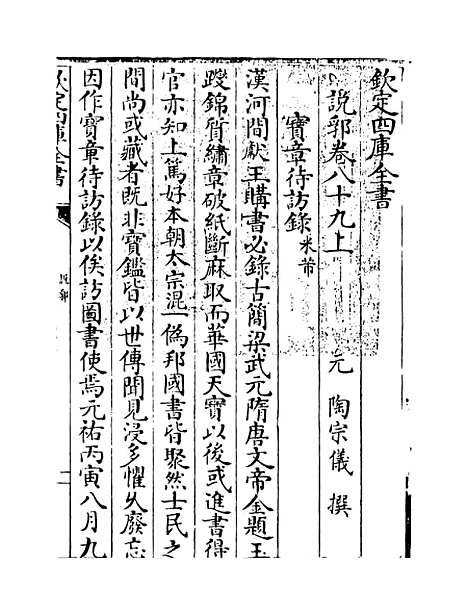 欽定四庫全書
說郛卷八十九上
元 陶宗儀 撰
寶章待訪錄米芾
漢河間獻王購書必錄古簡梁武元隋唐文帝金題玉
躞錦質繡章破紙斷麻取而華國天寶以後或進書得
官亦知上篤好本朝太宗混一僞邦國書皆聚然士民之
間尚或藏者既非寶鑑皆以世傳聞見浸多懼久廢忘
因作寶章待訪錄以俟訪圖書使焉元祐丙寅八月九
欽定四庫全書
說郛